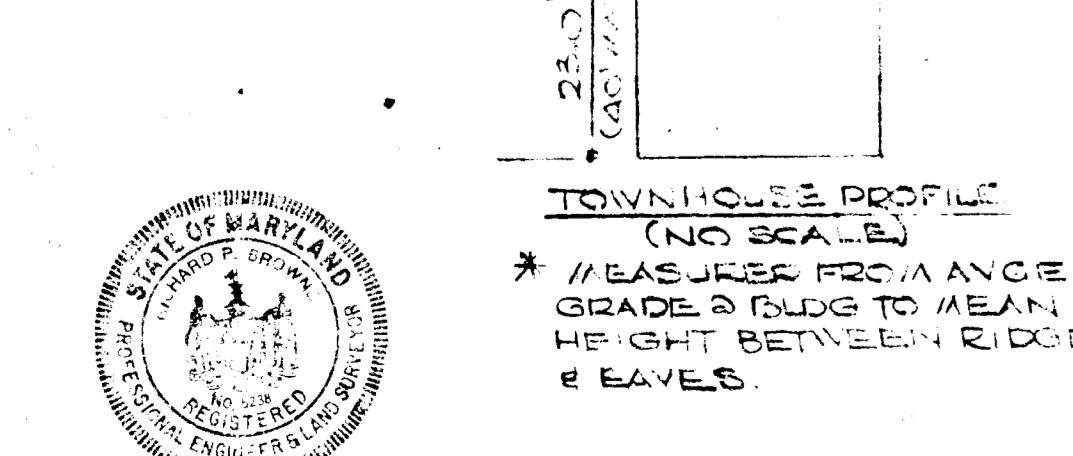 23.0
(40'
TOWNHOUSE PROFILE
(NO SCALE)
* MEASURED FROM AVGE
GRADE @ BLDG TO MEAN
HEIGHT BETWEEN RIDGE
& EAVES.
STATE OF MARYLAND
RICHARD P. BROWNE
NO. 5238
REGISTERED
PROFESSIONAL ENGINEER & LAND SURVEYOR